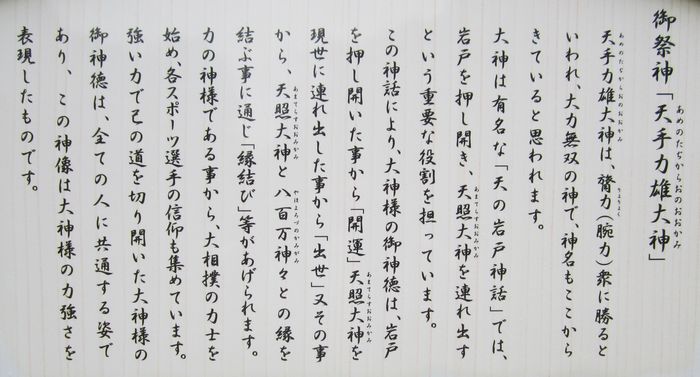 御祭神「天手力雄大神」
天手力雄大神は、膂力(腕力)衆に勝ると
いわれ、大力無双の神で、神名もここから
きていると思われます。
大神は有名な「天の岩戸神話」では、
岩戸を押し開き、天照大神を連れ出す
という重要な役割を担っています。
この神話により、大神様の御神徳は、岩戸
を押し開いた事から「開運」天照大神を
現世に連れ出した事から「出世」又その事
から、天照大神と八百万神々との縁を
結ぶ事に通じ「縁結び」等があげられます。
力の神様である事から、大相撲の力士を
始め、各スポーツ選手の信仰も集めています。
強い力で己の道を切り開いた大神様の
御神徳は、全ての人に共通する姿で
あり、この神像は大神様の力強さを
表現したものです。